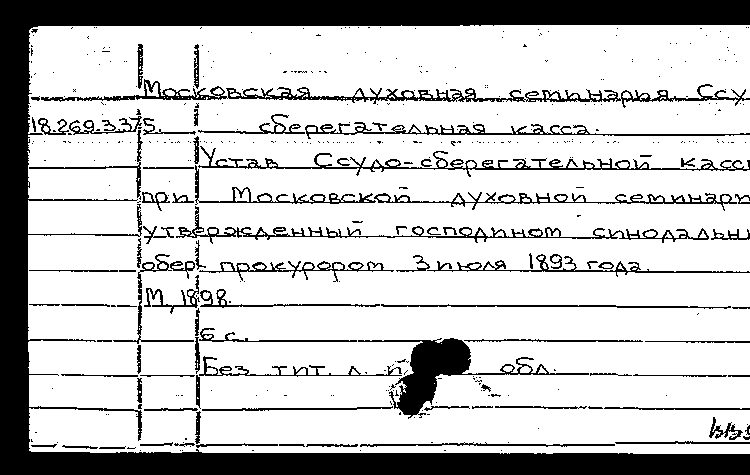 Московская духовная семинария. Ссу
18.269.3.375. сберегательная касса.
Устав Ссудо-сберегательной касс
при Московской духовной семинари
утвержденный господином синодальн
обер-прокурором 3 июля 1893 года.
М., 1898.
6 с.
Без тит. л. и обл.